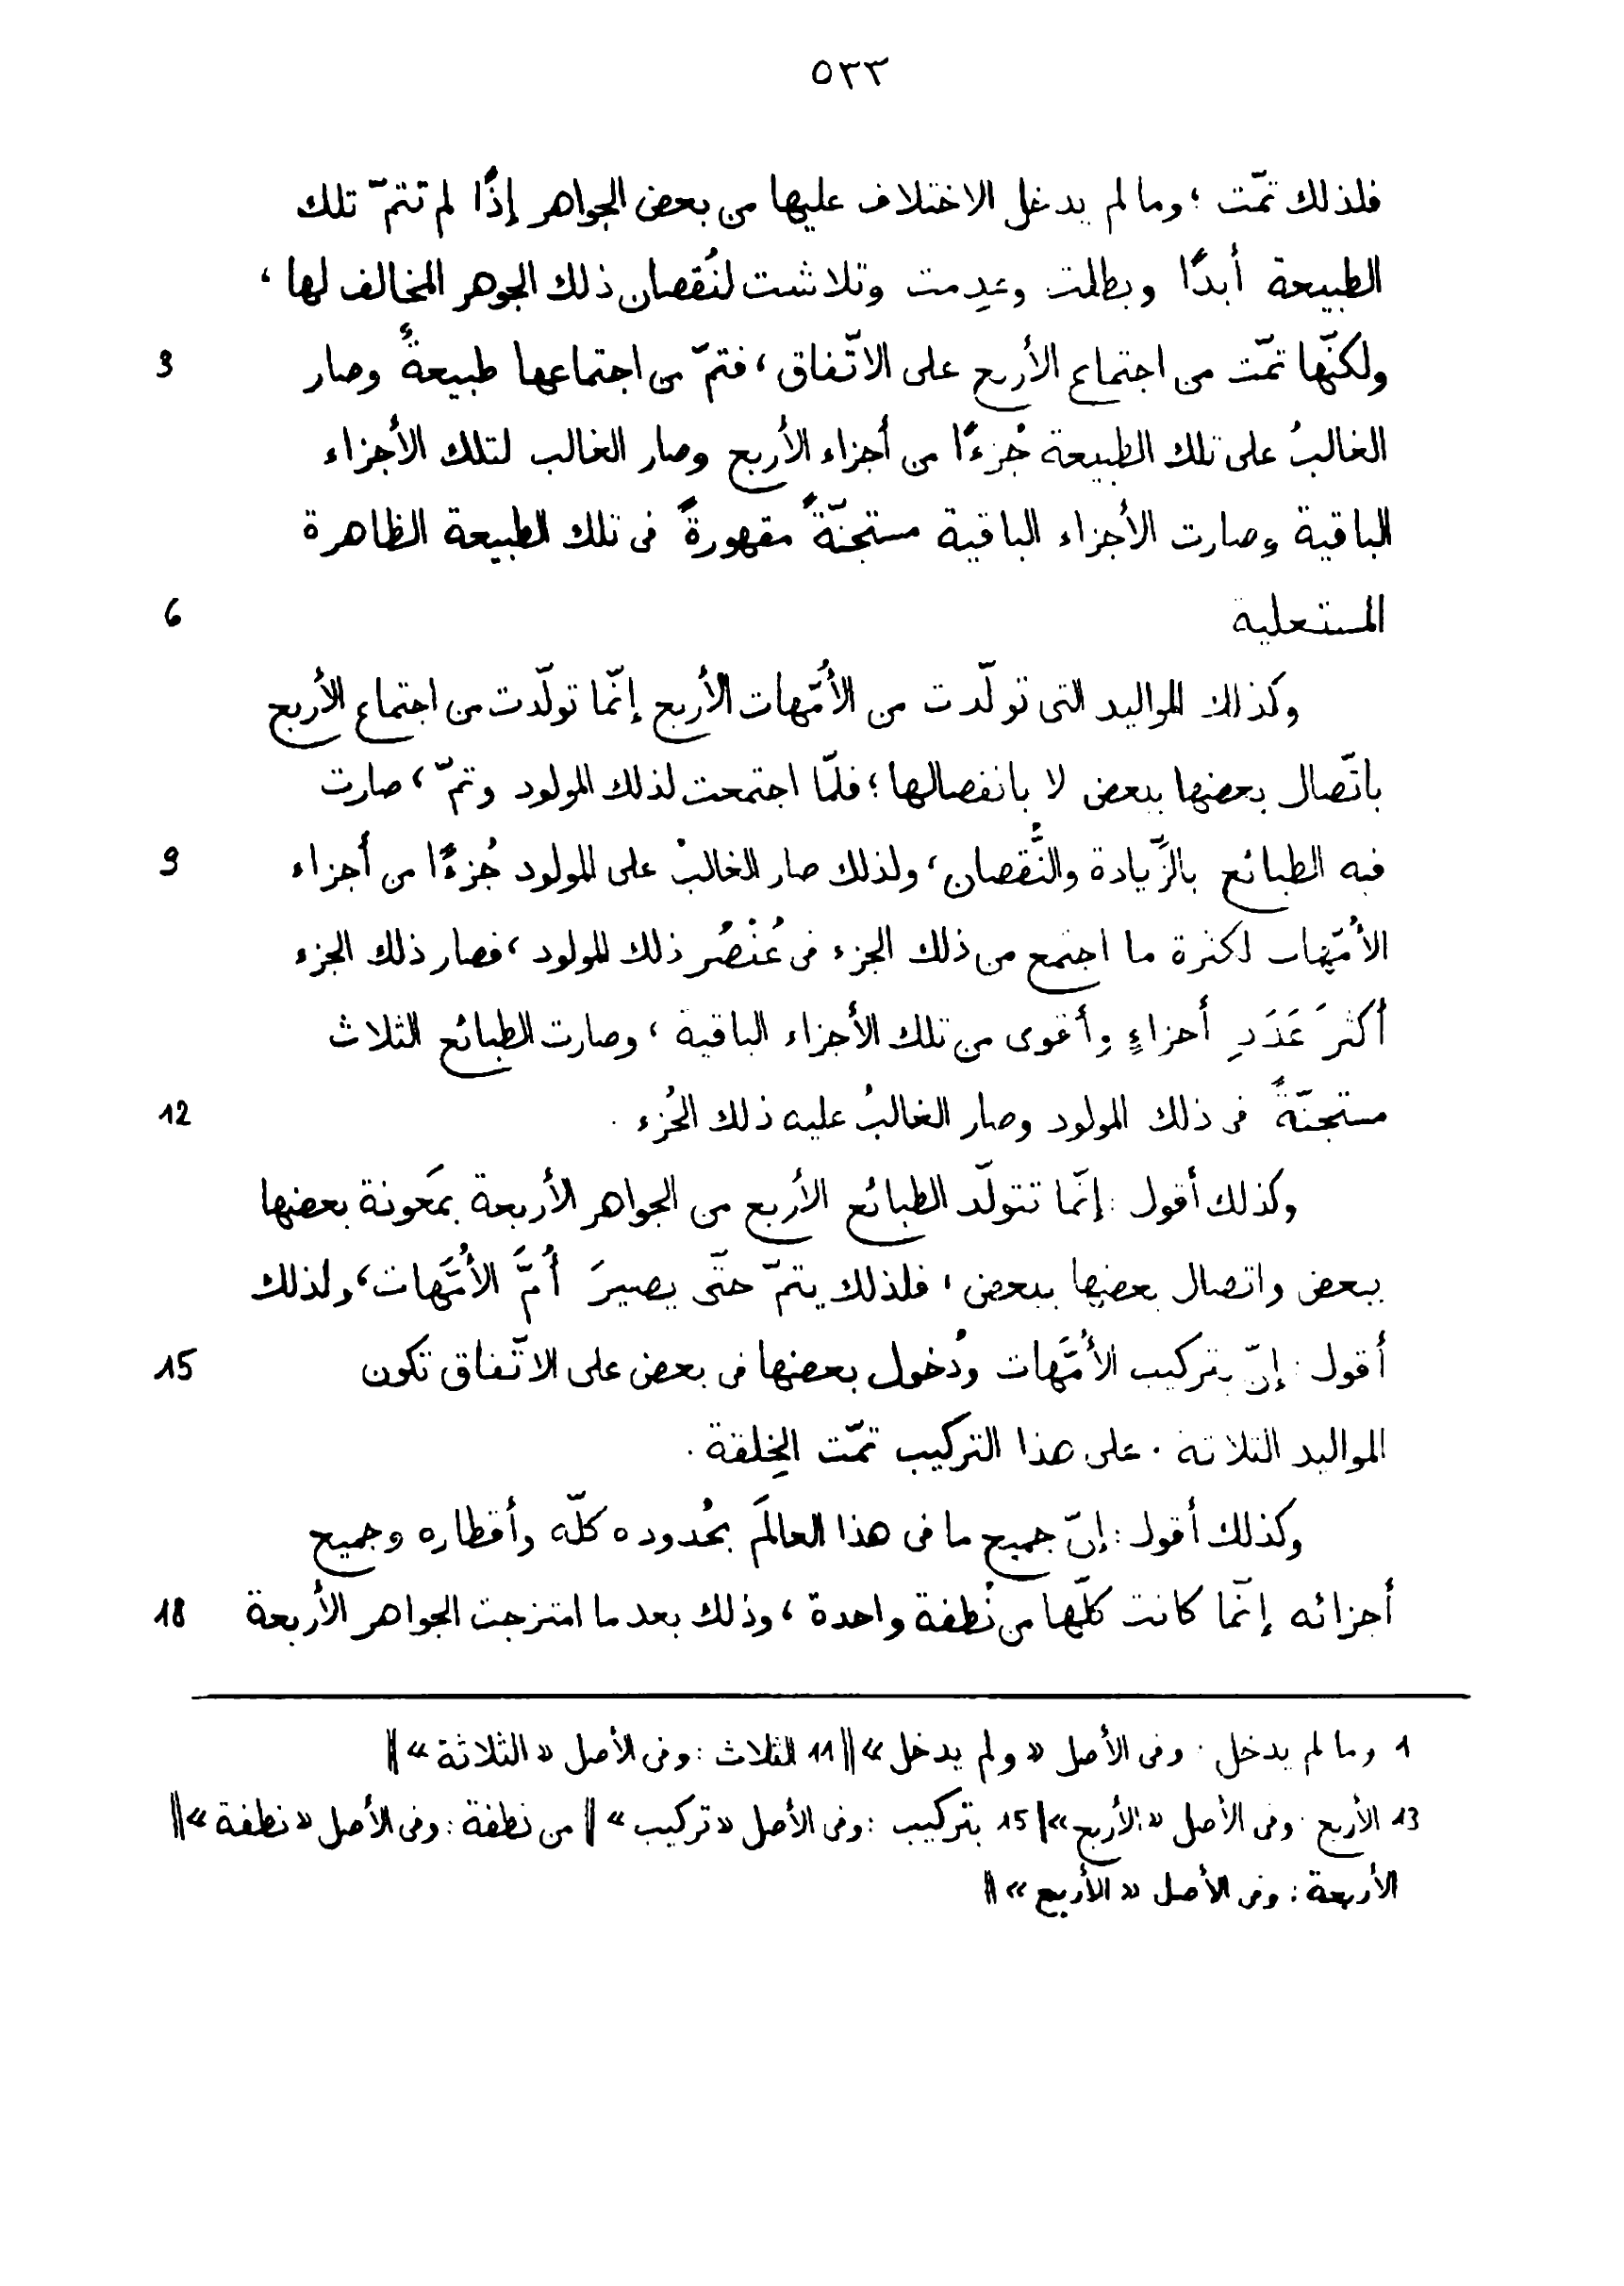 ٥٣٣
فلذلك تمّت ؛ وما لم يدخل الاختلاف عليها من بعض الجواهر إذًا لم تتمّ تلك
الطبيعة أبدًا وبطلت وعدِمت وتلاشت لنُقصان ذلك الجوهر المخالف لها ،
ولكنّها تمّت من اجتماع الأربع على الاتّفاق ، فتمّ من اجتماعها طبيعةٌ وصار 3
الغالبُ على تلك الطبيعة جُزءًا من أجزاء الأربع وصار الغالب لتلك الأجزاء
الباقية وصارت الأجزاء الباقية مستجنّةً مقهورةً فى تلك الطبيعة الظاهرة
المستعلية 6
وكذلك المواليد التى تولّدت من الأُمّهات الأربع إنّما تولّدت من اجتماع الأربع
باتّصال بعضها ببعض لا بانفصالها ؛ فلمّا اجتمعت لذلك المولود وتمّ ، صارت
فيه الطبائع بالزّيادة والنُّقصان ، ولذلك صار الغالبُ على المولود جُزءًا من أجزاء 9
الأُمّهات لكثرة ما اجتمع من ذلك الجزء فى عُنْصُر ذلك المولود ، فصار ذلك الجزء
أكثرَ عَدَدِ أجزاءٍ وأقوى من تلك الأجزاء الباقية ، وصارت الطبائع الثلاث
مستجنّةً فى ذلك المولود وصار الغالبُ عليه ذلك الجُزء . 12
وكذلك أقول : إنّما تتولّد الطبائع الأربع من الجواهر الأربعة بمَعونة بعضها
ببعض واتصال بعضها ببعض ، فلذلك يتمّ حتّى يصيرَ أُمَّ الأُمَّهات ، ولذلك
أقول : إنّ بتركيب الأُمَّهات ودُخول بعضها فى بعض على الاتّفاق تكون 15
المواليد الثلاثة . على هذا التركيب تمّت الخِلقة .
وكذلك أقول : إنّ جميع ما فى هذا العالَم بحُدوده كلّه وأقطاره وجميع
أجزائه إنّما كانت كلّها من نُطفة واحدة ، وذلك بعد ما امتزجت الجواهر الأربعة 18
1 وما لم يدخل : وفى الأصل « ولم يدخل » || 11 الثلاث : وفى الأصل « الثلاثة » ||
13 الأربع : وفى الأصل « الأربع » || 15 بتركيب : وفى الأصل « تركيب » || من نطفة : وفى الأصل « نطفة » ||
الأربعة : وفى الأصل « الأربع » ||